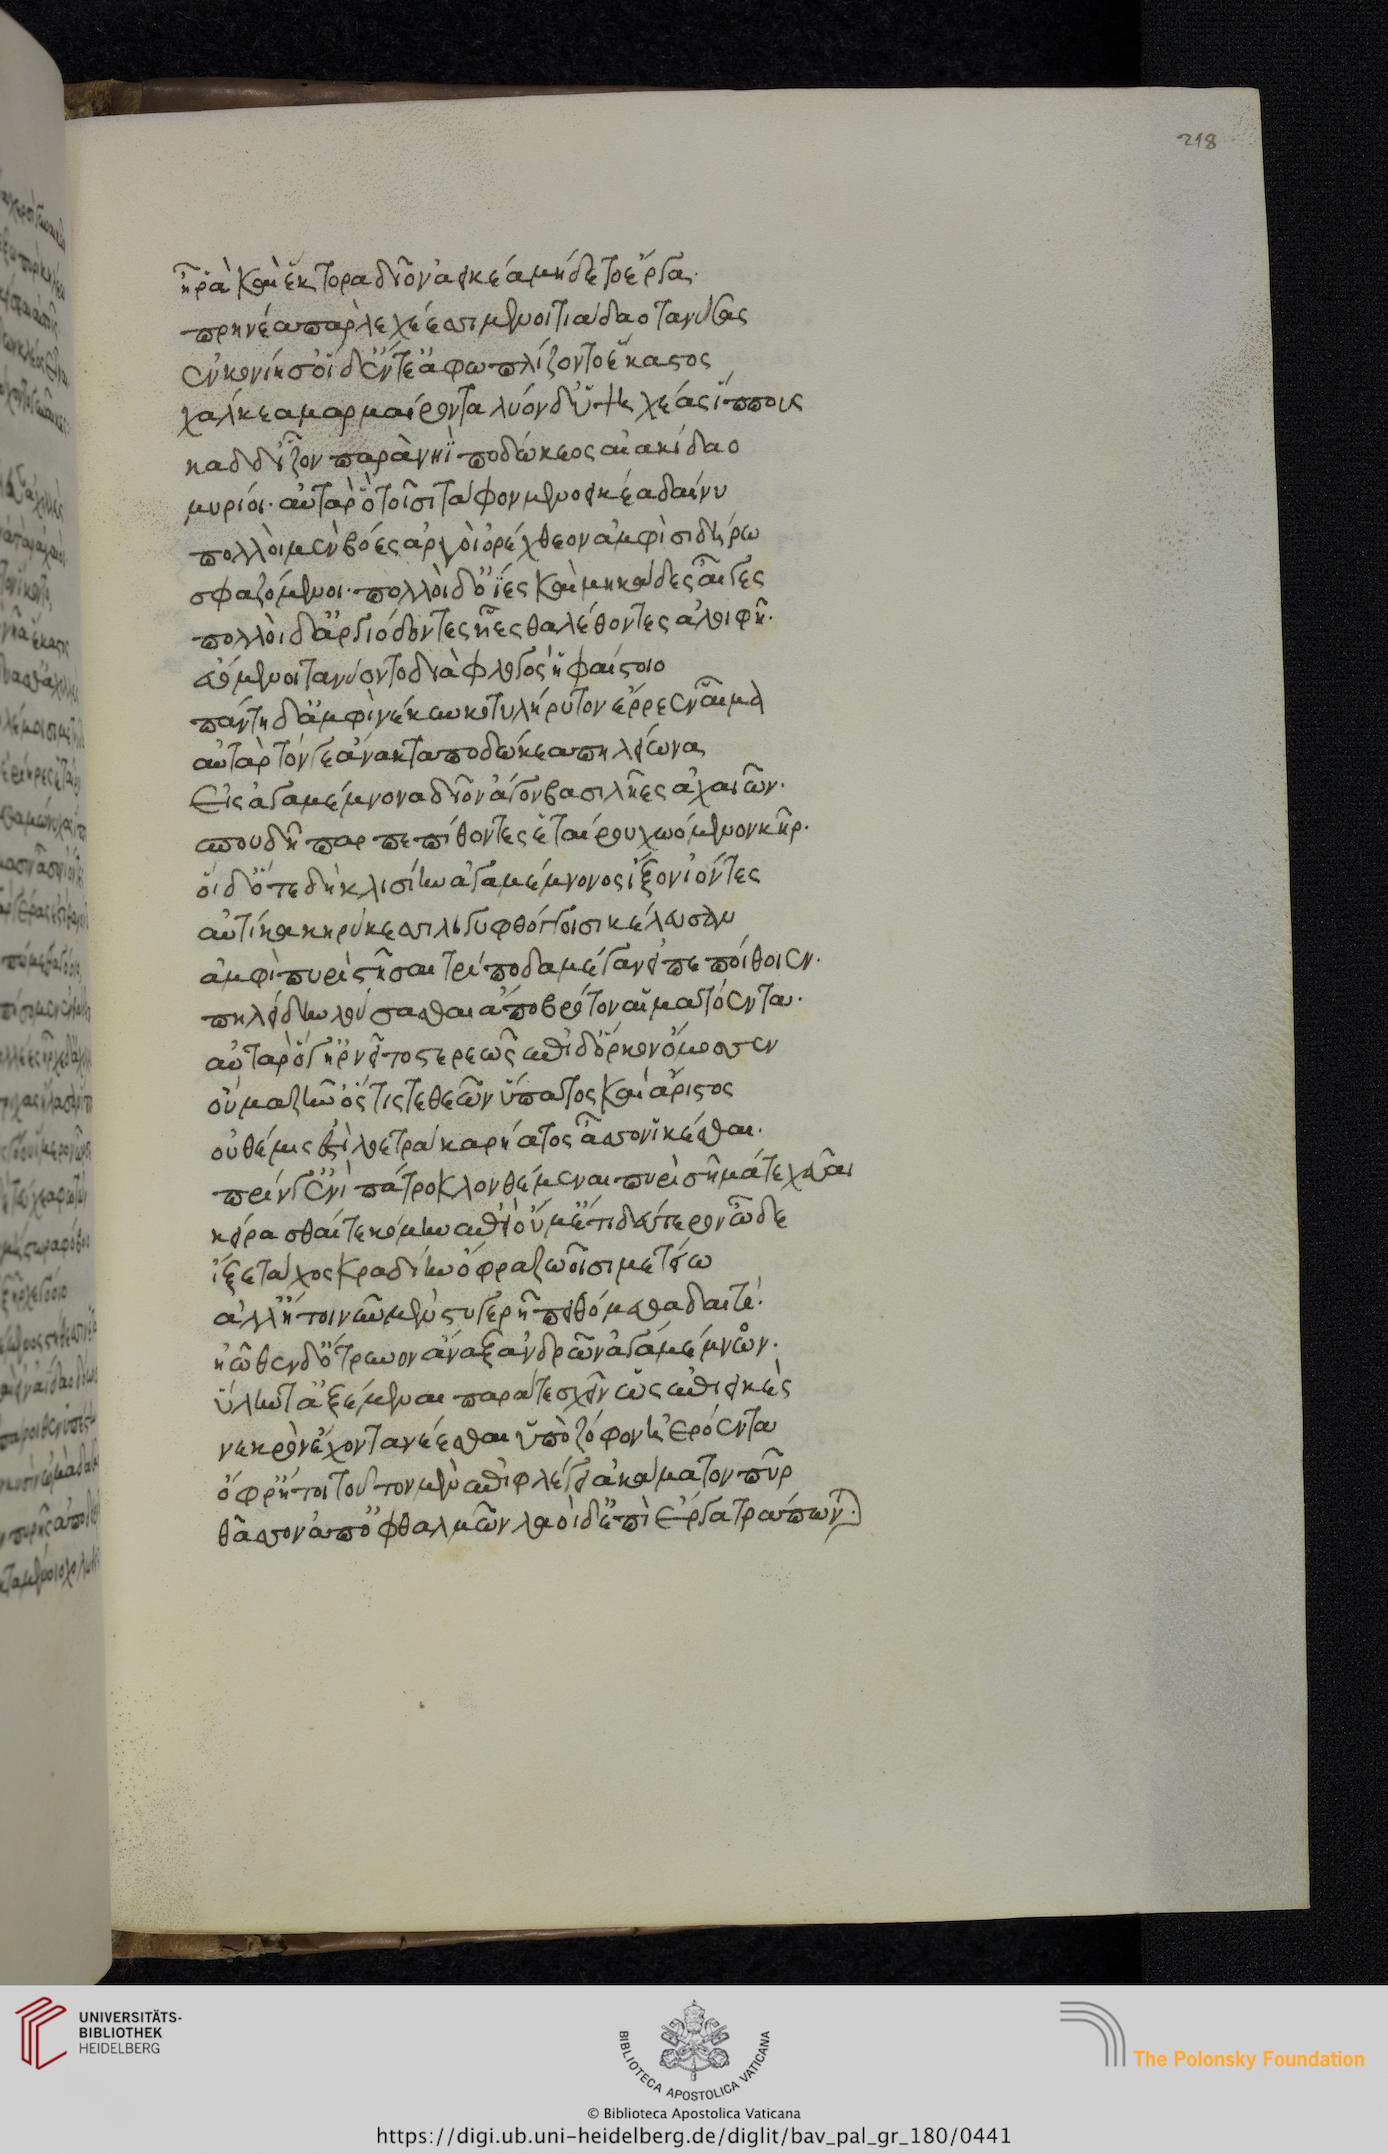 218
ἦ ῥα καὶ ἕκτορα δῖον ἀεικέα μήδετο ἔργα.
πρηνέα παρ λεχέεσσι μενοιτιάδαο τανύσας
ἐν κονίης· οἱ δ' ἔντε' ἀφωπλίζοντο ἕκαστος
χάλκεα μαρμαίροντα λύον δ' ὑψηχέας ἵππους
καδδ' ἷζον παρὰ νηῒ ποδώκεος αἰακίδαο
μυρίοι· αὐτὰρ ὁ τοῖσι τάφον μενοεικέα δαίνυ
πολλοὶ μὲν βόες ἀργοὶ ὀρέχθεον ἀμφὶ σιδήρω
σφαζόμενοι· πολλοὶ δ' ὄϊες καὶ μηκάδες αἶγες
πολλοὶ δ' ἀργιόδοντες ὕες θαλέθοντες ἀλοιφῆ.
εὑόμενοι τανύοντο διὰ φλογὸς ἡφαίστοιο
πάντη δ' ἀμφὶ νέκυν κοτυλήρυτον ἔρρεεν αἷμα
αὐτὰρ τόνγε ἄνακτα ποδώκεα πηλείωνα
εἰς ἀγαμέμνονα δῖον ἄγον βασιλῆες ἀχαιῶν.
σπουδῆ παρπεπίθοντες ἑταίρου χωόμενον κῆρ.
οἱ δ' ὅτε δὴ κλισίην ἀγαμέμνονος ἷξον ἰόντες
αὐτίκα κηρύκεσσι λιγυφθόγγοισι κέλευσαν
ἀμφὶ πυρὶ στῆσαι τρίποδα μέγαν εἰ πεπίθοιεν.
πηλείδην λούσασθαι ἄπο βρότον αἱματόεντα.
αὐτὰρ ὅγ' ἠρνεῖτο στερεῶς ἐπὶ δ' ὅρκον ὄμοσσεν
οὐ μὰ ζῆν' ὅς τίς τε θεῶν ὕπατος καὶ ἄριστος
οὐ θέμις ἐστὶ λοετρὰ καρήατος ἆσσον ἱκέσθαι.
πρίν γ' ἐνὶ πάτροκλον θέμεναι πυρὶ σῆμά τε χεῦαι
κείρασθαί τε κόμην ἐπεὶ οὔ μ' ἔτι δεύτερον ὧδε
ἵξετ' ἄχος κραδίην ὄφρα ζωοῖσι μετείω
ἀλλ' ἤτοι νῦν μὲν στυγερῆ πειθόμεθα δαιτί.
ἠῶθεν δ' ὄτρυνον ἄναξ ἀνδρῶν ἀγάμεμνον.
ὕλην τ' ἀξέμεναι παρά τε σχεῖν ὡς ἐπιεικὲς
νεκρὸν ἔχοντα νέεσθαι ὑπὸ ζόφον ἠερόεντα
ὄφρ' ἤτοι τοῦτον μὲν ἐπιφλέγει ἀκάματον πῦρ
θᾶσσον ἀπ' ὀφθαλμῶν λαοὶ δ' ἐπὶ ἔργα τράπων.
UNIVERSITÄTS-
BIBLIOTHEK
HEIDELBERG
BIBLIOTECA APOSTOLICA VATICANA
The Polonsky Foundation
© Biblioteca Apostolica Vaticana
https://digi.ub.uni-heidelberg.de/diglit/bav_pal_gr_180/0441